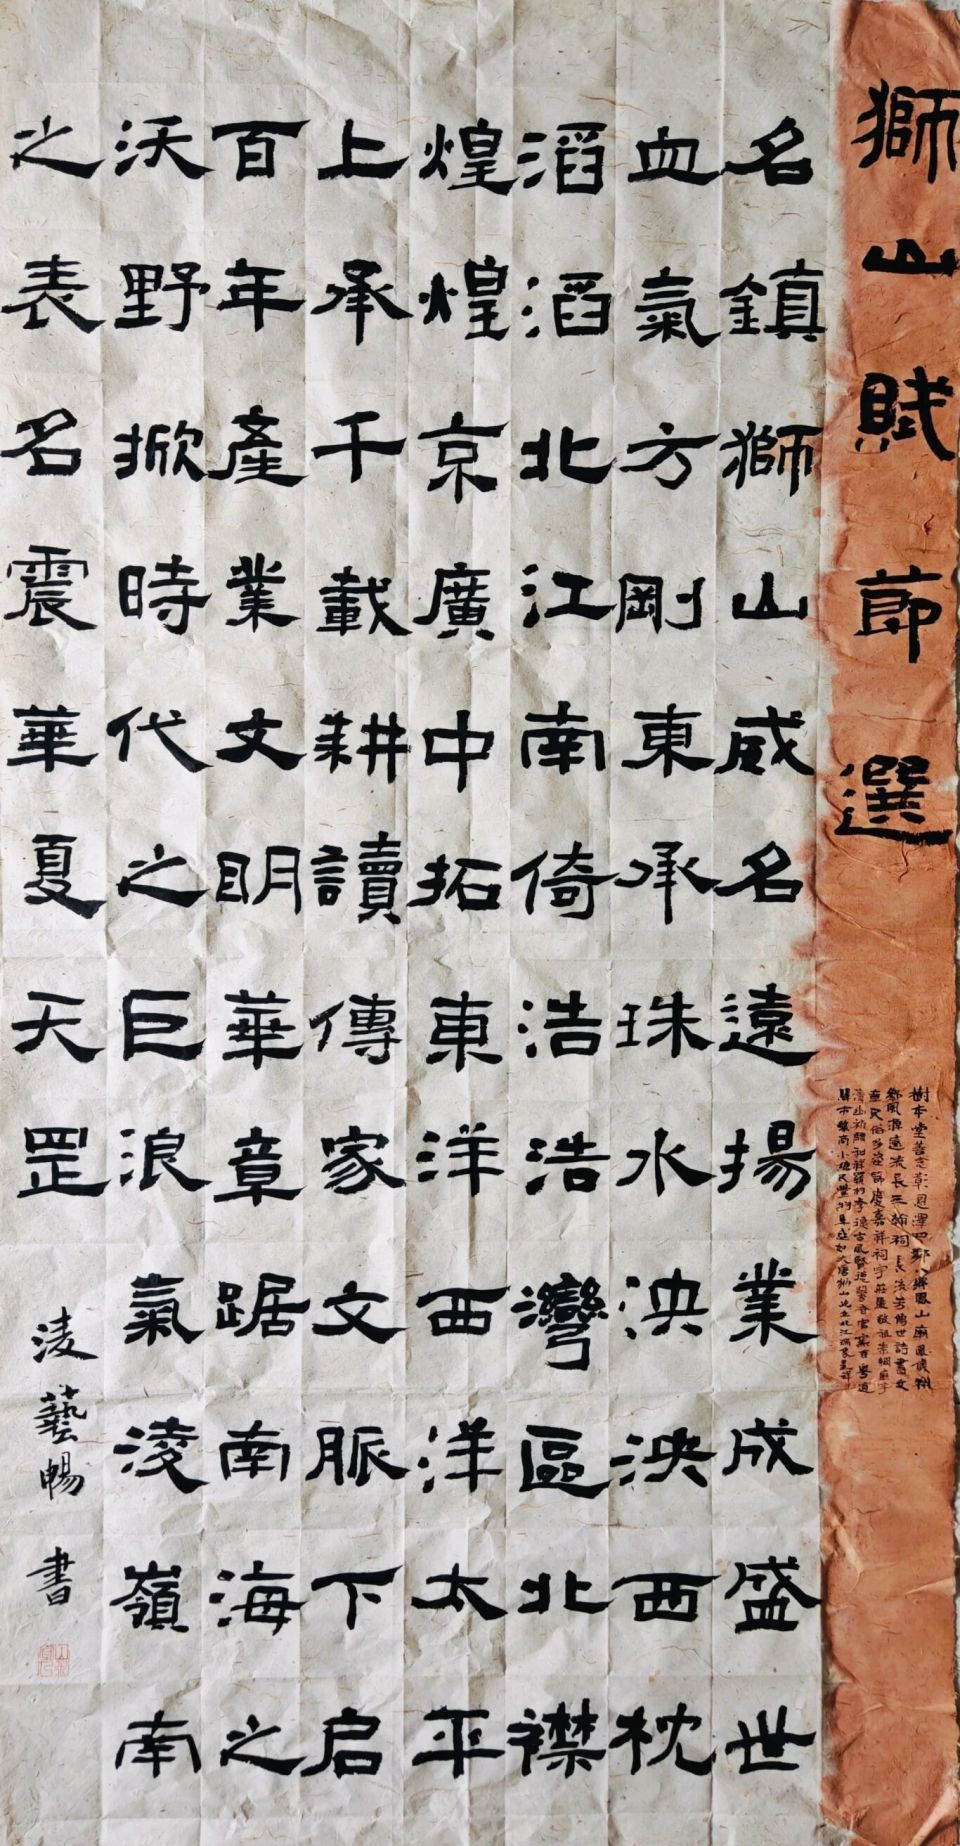 獅山賦節選
樹本堂善志彰恩澤四鄰
鄉風源遠流長
名鎮獅山威名遠揚業成盛世
血氣方剛東承珠水泱泱西枕
滔滔北江南倚浩浩灣區北襟
煌煌京廣中拓東洋西洋太平
上承千載耕讀傳家文脈下启
百年產業文明華章踞南海之
沃野掀時代之巨浪氣淩嶺南
之表名震華夏天罡
淩藝暢書